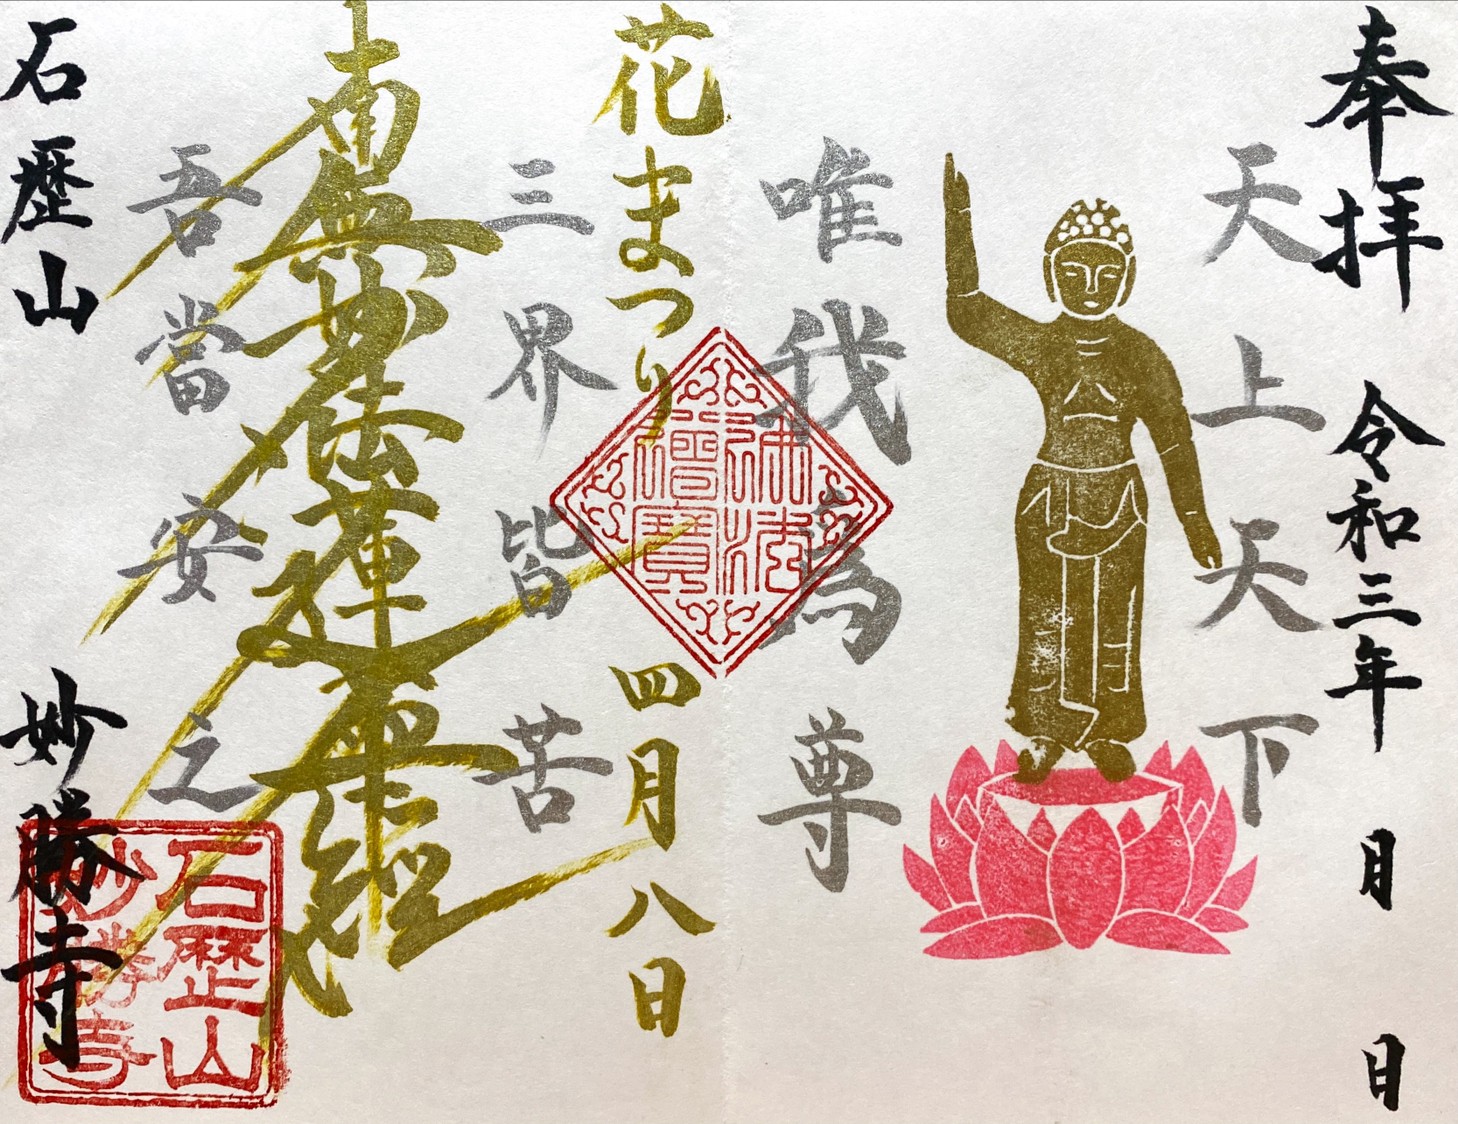 奉拝 令和三年 月 日
天上天下
唯我為尊
花まつり 四月八日
三界皆苦
南無妙法蓮華経
吾當安之
石歴山 妙勝寺
佛法僧寶
石歴山
妙勝寺